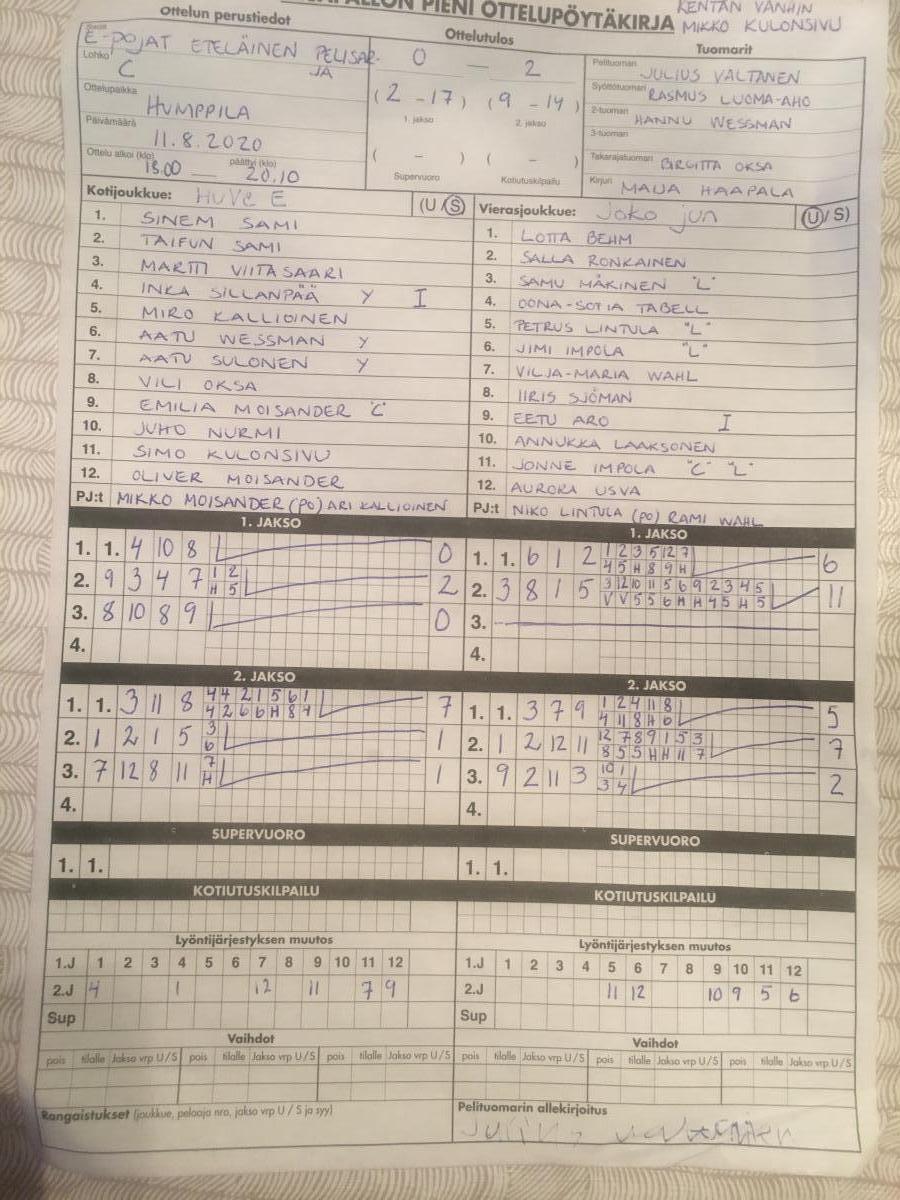 PIENI OTTELUPÖYTÄKIRJA
KENTÄN VANHIN
MIKKO KULONSIVU
Ottelun perustiedot
Sarja
E-POJAT ETELÄINEN PELISAR-
JA
Lohko
C
Ottelupaikka
HUMPPILA
Päivämäärä
11.8.2020
Ottelu alkoi (klo) päättyi (klo)
18.00 — 20.10
Ottelutulos
0 — 2
(2 - 17) (9 - 14)
1. jakso 2. jakso
( - ) ( - )
Supervuoro Kotiutuskilpailu
Tuomarit
Pelituomari JULIUS VALTANEN
Syöttötuomari RASMUS LUOMA-AHO
2-tuomari HANNU WESSMAN
3-tuomari
Takarajatuomari BIRGITTA OKSA
Kirjuri MAIJA HAAPALA
Kotijoukkue: HuVe E (U / S)
1. SINEM SAMI
2. TAIFUN SAMI
3. MARTTI VIITASAARI
4. INKA SILLANPÄÄ Y I
5. MIRO KALLIOINEN
6. AATU WESSMAN Y
7. AATU SULONEN Y
8. VILI OKSA
9. EMILIA MOISANDER "C"
10. JUHO NURMI
11. SIMO KULONSIVU
12. OLIVER MOISANDER
PJ:t MIKKO MOISANDER (PO) ARI KALLIOINEN
Vierasjoukkue: JoKo jun (U / S)
1. LOTTA BEHM
2. SALLA RONKAINEN
3. SAMU MÄKINEN "L"
4. OONA-SOFIA TABELL
5. PETRUS LINTULA "L"
6. JIMI IMPOLA "L"
7. VILJA-MARIA WAHL
8. IIRIS SJÖMAN
9. EETU ARO I
10. ANNUKKA LAAKSONEN
11. JONNE IMPOLA "C" "L"
12. AURORA USVA
PJ:t NIKO LINTULA (PO) RAMI WAHL
1. JAKSO
1. 1. 4 10 8 0
2. 9 3 4 7 1 2 2
H 5
3. 8 10 8 9 0
4.
1. JAKSO
1. 1. 6 1 2 1 2 3 5 12 7 6
4 5 H 8 9 H
2. 3 8 1 5 3 12 10 11 5 6 9 2 3 4 5 11
V V 5 5 6 H H 4 5 H 5
3.
4.
2. JAKSO
1. 1. 3 11 8 4 4 2 1 5 6 1 7
4 2 6 6 H 8 9
2. 1 2 1 5 3 1
6
3. 7 12 8 11 7 1
H
4.
2. JAKSO
1. 1. 3 7 9 1 2 4 11 8 5
4 11 8 H 6
2. 1 2 12 11 12 7 8 9 1 5 3 7
8 5 5 H H 11 7
3. 9 2 11 3 10 1 2
3 4
4.
SUPERVUORO
1. 1.
SUPERVUORO
1. 1.
KOTIUTUSKILPAILU
KOTIUTUSKILPAILU
Lyöntijärjestyksen muutos
1.J 1 2 3 4 5 6 7 8 9 10 11 12
2.J 4 1 12 11 7 9
Sup
Lyöntijärjestyksen muutos
1.J 1 2 3 4 5 6 7 8 9 10 11 12
2.J 11 12 10 9 5 6
Sup
Vaihdot
pois tilalle Jakso vrp U/S pois tilalle Jakso vrp U/S pois tilalle Jakso vrp U/S
Vaihdot
pois tilalle Jakso vrp U/S pois tilalle Jakso vrp U/S pois tilalle Jakso vrp U/S
Rangaistukset (joukkue, pelaaja nro, jakso vrp U / S ja syy)
Pelituomarin allekirjoitus